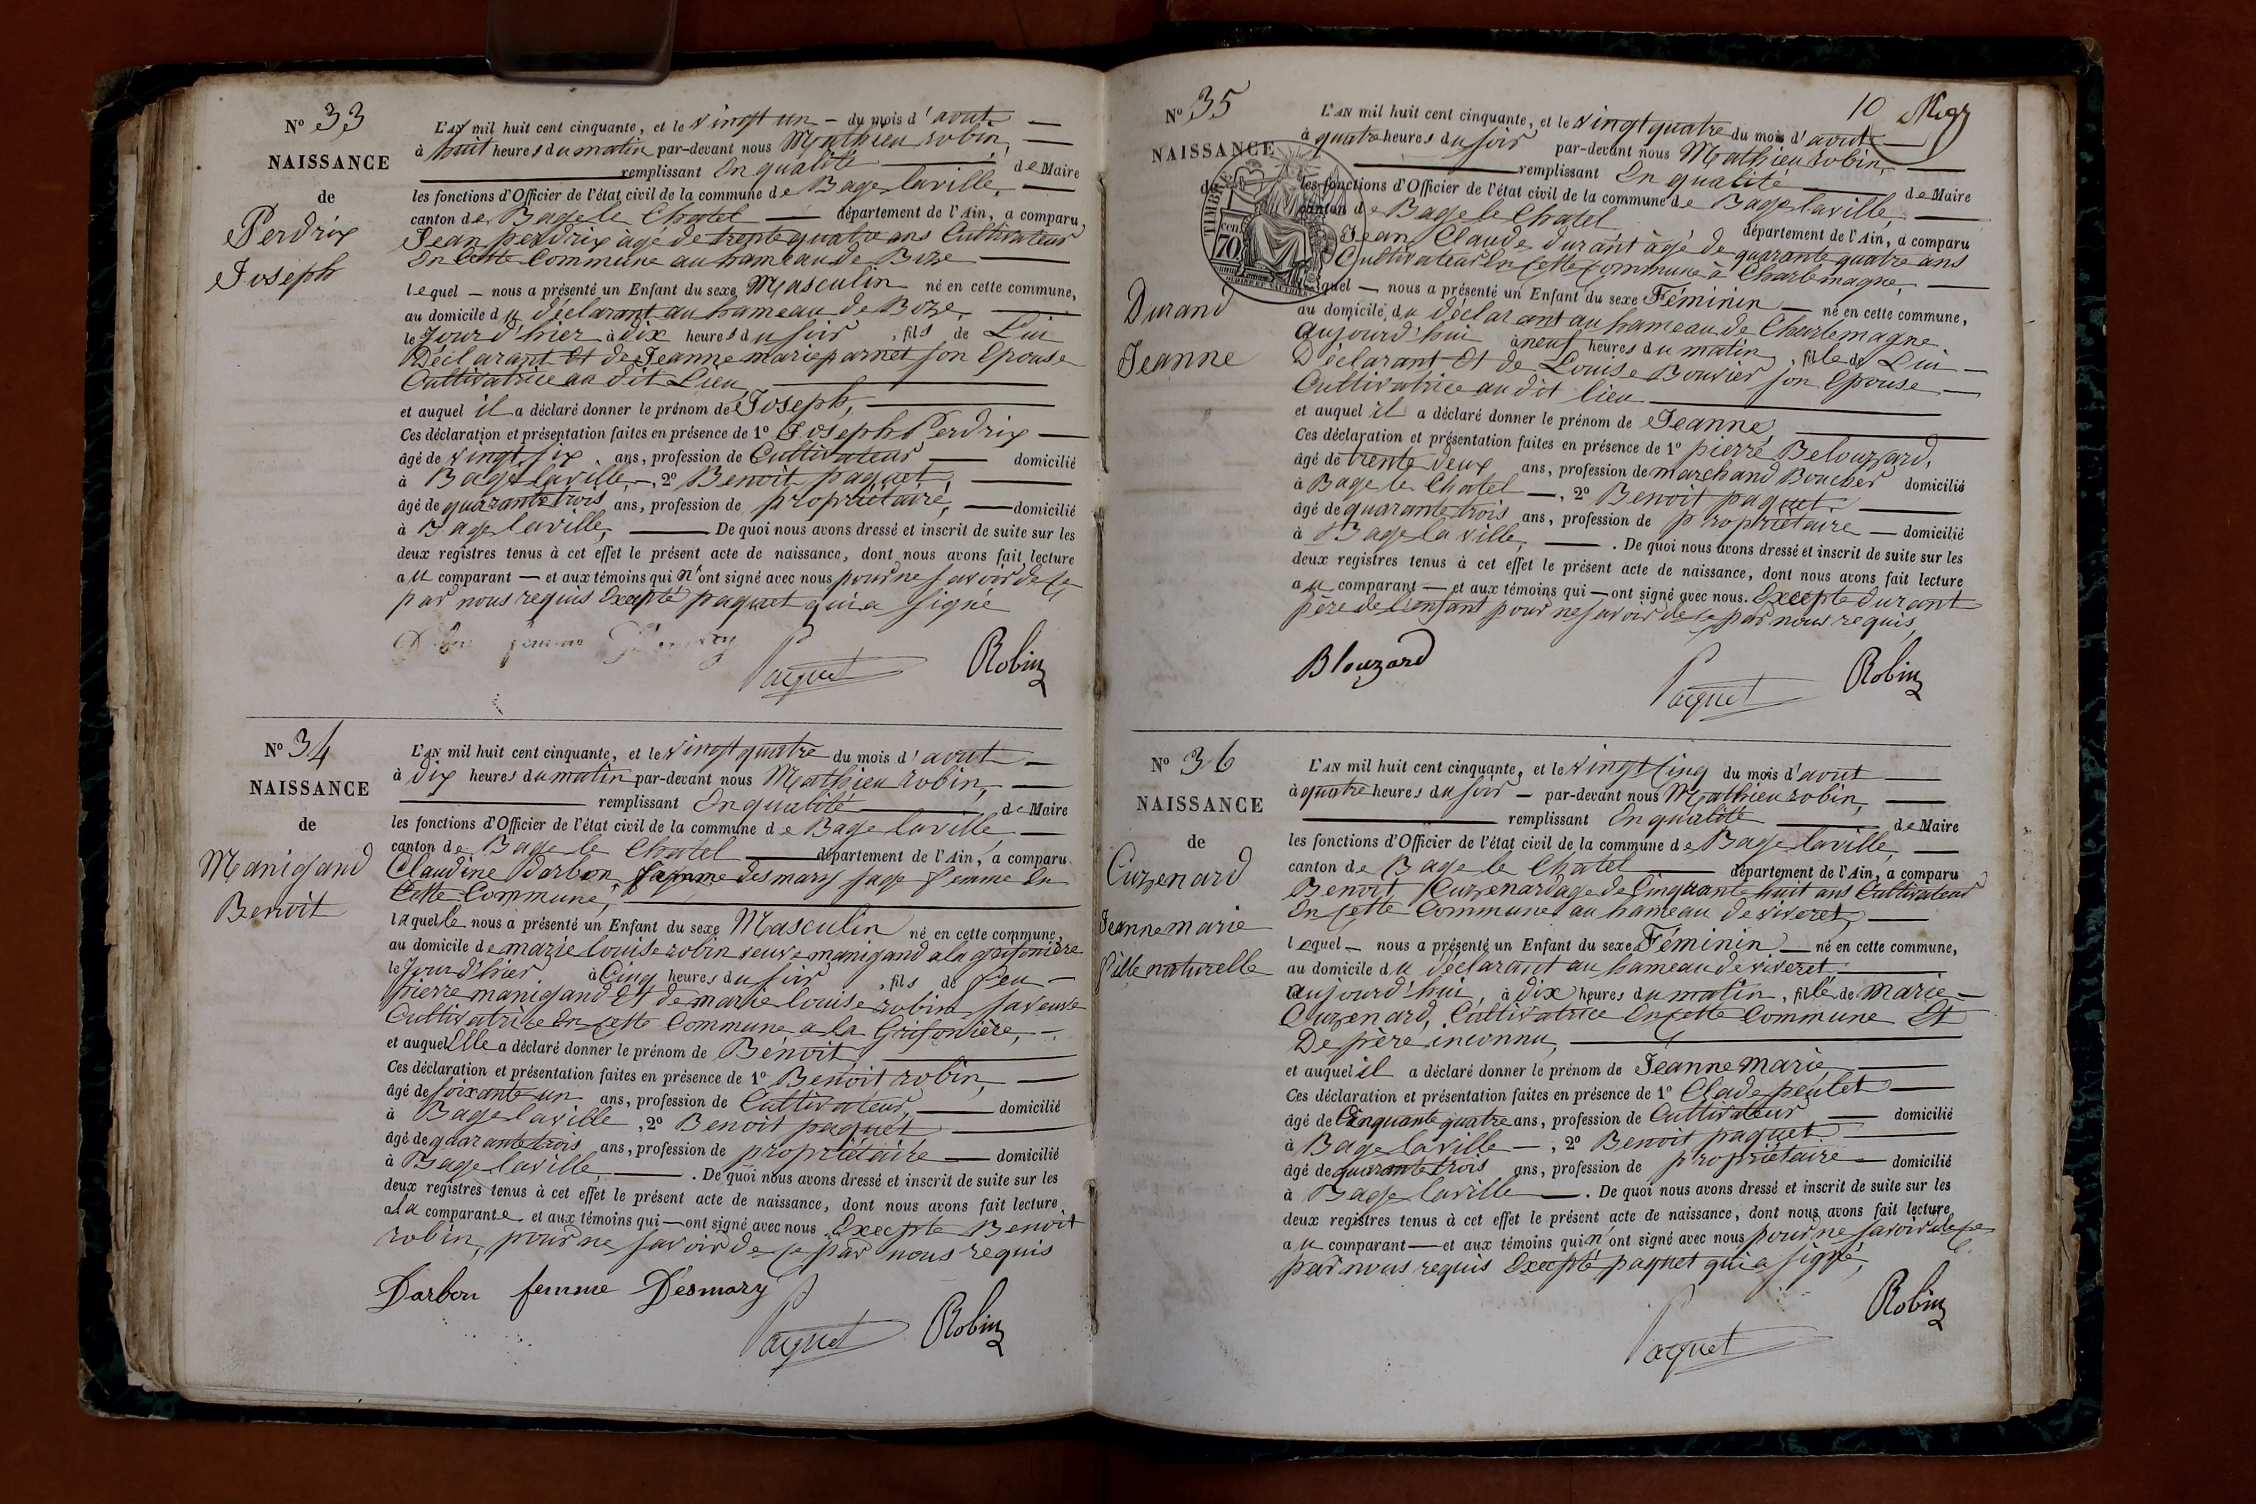 N° 33
NAISSANCE
de
Perdrix
Joseph
L'AN mil huit cent cinquante, et le vingt un — du mois d'avout —
à huit heures du matin par-devant nous Mathieu robin, —
remplissant En qualité de Maire
les fonctions d'Officier de l'état civil de la commune de Bage laville, —
canton de Bage le Chatel — département de l'Ain, a comparu
Jean perdrix âgé de trente quatre ans Cultivateur
En Cette Commune au hameau de Boze —
lequel — nous a présenté un Enfant du sexe Masculin né en cette commune,
au domicile du déclarant au hameau de Boze, —
le Jour d'hier à dix heures du soir, fils de Lui
Déclarant Et de Jeanne marie parnet son Epouse
Cultivatrice au dit Lieu —
et auquel il a déclaré donner le prénom de Joseph, —
Ces déclaration et présentation faites en présence de 1° Joseph Perdrix —
âgé de vingt six ans, profession de Cultivateur — domicilié
à Bage laville, —, 2° Benoit paquet, —
âgé de quarante trois ans, profession de propriétaire, — domicilié
à Bage laville, — De quoi nous avons dressé et inscrit de suite sur les
deux registres tenus à cet effet le présent acte de naissance, dont nous avons fait lecture
au comparant — et aux témoins qui n'ont signé avec nous pour ne savoir de ce
par nous requis Excepté paquet qui a signé
Paquet
Robin
N° 34
NAISSANCE
de
Manigand
Benoit
L'AN mil huit cent cinquante, et le vingt quatre du mois d'avout —
à dix heures du matin par-devant nous Mathieu robin, —
remplissant En qualité de Maire
les fonctions d'Officier de l'état civil de la commune de Bage laville, —
canton de Bage le Chatel — département de l'Ain, a comparu
Claudine Darbon, femme desmary sage femme En
Cette Commune, —
laquelle nous a présenté un Enfant du sexe Masculin né en cette commune,
au domicile de marie louise robin veuve manigand a la grisonière
le Jour d'hier à Cinq heures du soir, fils de feu —
pierre manigand Et de marie louise robin sa veuve
Cultivatrice En Cette Commune a la Grisonière, —
et auquel Elle a déclaré donner le prénom de Benoit, —
Ces déclaration et présentation faites en présence de 1° Benoit robin, —
âgé de soixante un ans, profession de Cultivateur, — domicilié
à Bage laville, 2° Benoit paquet —
âgé de quarante trois ans, profession de propriétaire — domicilié
à Bage laville, — . De quoi nous avons dressé et inscrit de suite sur les
deux registres tenus à cet effet le présent acte de naissance, dont nous avons fait lecture
a la comparante et aux témoins qui — ont signé avec nous Excepté Benoit
robin, pour ne savoir de ce par nous requis
Darbon femme Desmary
Paquet
Robin
10
N° 35
NAISSANCE
de
Durand
Jeanne
TIMBRE
70
L'AN mil huit cent cinquante, et le vingt quatre du mois d'avout —
à quatre heures du soir par-devant nous Mathieu robin, —
remplissant En qualité — de Maire
les fonctions d'Officier de l'état civil de la commune de Bage laville, —
canton de Bage le Chatel département de l'Ain, a comparu
Jean Claude durant âgé de quarante quatre ans
Cultivateur En Cette Commune à Charlemagne, —
lequel — nous a présenté un Enfant du sexe Féminin — né en cette commune,
au domicile du déclarant au hameau de Charlemagne
aujourd'hui à neuf heures du matin, fille de Lui —
Déclarant Et de Louise Bouvier son Epouse —
Cultivatrice au dit lieu —
et auquel il a déclaré donner le prénom de Jeanne —
Ces déclaration et présentation faites en présence de 1° pierre Belouzard,
âgé de trente deux ans, profession de marchand Boucher domicilié
à Bage le Chatel —, 2° Benoit paquet. —
âgé de quarante trois ans, profession de propriétaire — domicilié
à Bage la ville, — . De quoi nous avons dressé et inscrit de suite sur les
deux registres tenus à cet effet le présent acte de naissance, dont nous avons fait lecture
au comparant — et aux témoins qui — ont signé avec nous. Excepté durant
père de l'enfant pour ne savoir de ce par nous requis
Blouzard
Paquet
Robin
N° 36
NAISSANCE
de
Cuzenard
Jeanne marie
fille naturelle
L'AN mil huit cent cinquante, et le vingt Cinq du mois d'avout —
à quatre heures du soir — par-devant nous Mathieu robin, —
remplissant En qualité — de Maire
les fonctions d'Officier de l'état civil de la commune de Bage laville, —
canton de Bage le Chatel — département de l'Ain, a comparu
Benoit Cuzenard age de Cinquante huit ans Cultivateur
En Cette Commune au hameau de viveret, —
lequel — nous a présenté un Enfant du sexe Féminin — né en cette commune,
au domicile du déclarant au hameau de viveret —
aujourd'hui, à dix heures du matin, fille de Marie —
Cuzenard, Cultivatrice En Cette Commune Et
De père inconnu, —
et auquel il a déclaré donner le prénom de Jeanne Marie —
Ces déclaration et présentation faites en présence de 1° Clade peulet —
âgé de Cinquante quatre ans, profession de Cultivateur — domicilié
à Bage laville —, 2° Benoit paquet —
âgé de quarante trois ans, profession de propriétaire — domicilié
à Bage laville — . De quoi nous avons dressé et inscrit de suite sur les
deux registres tenus à cet effet le présent acte de naissance, dont nous avons fait lecture
au comparant — et aux témoins qui n'ont signé avec nous pour ne savoir de ce
par nous requis Excepté paquet qui a signé,
Paquet
Robin